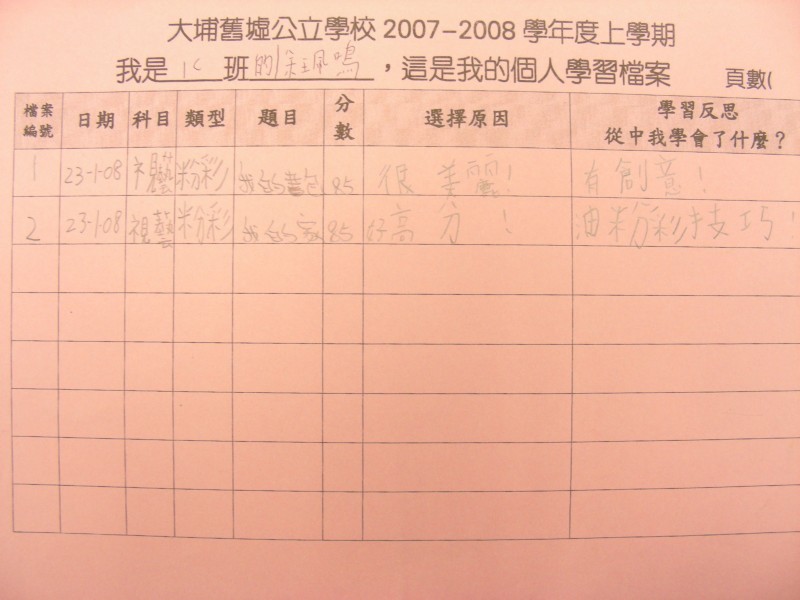 大埔舊墟公立學校 2007-2008 學年度上學期
我是 1C 班的 鳴，這是我的個人學習檔案 頁數(
檔案編號 日期 科目 類型 題目 分數 選擇原因 學習反思 從中我學會了什麼？
1 23-1-08 視藝 粉彩 我的書包 85 很美麗！ 有創意！
2 23-1-08 視藝 粉彩 我的家 85 好高分！ 油粉彩技巧！